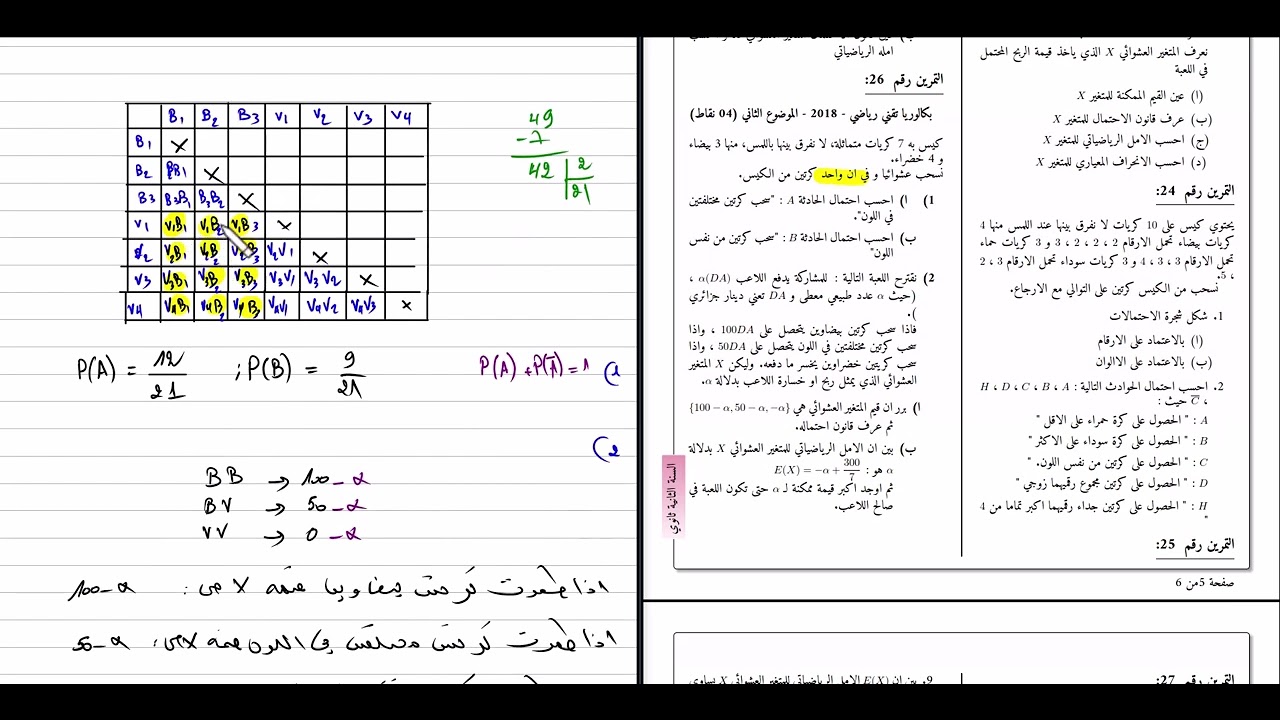 B1 B2 B3 V1 V2 V3 V4
B1 ×
B2 B2B1 ×
B3 B3B1 B3B2 ×
V1 V1B1 V1B2 V1B3 ×
V2B1 V2V1 ×
V3 V3B1 V3B2 V3B3 V3V1 V3V2 ×
V4 V4B1 V4B2 V4B3 V4V1 V4V2 V4V3 ×
49
-7
42 2
21
P(A) = 12/21 ; P(B) = 9/21 P(A) + P(Ā) = 1 (1
(2
BB → 100-α
BV → 50-α
VV → 0-α
100-α
50-α
امله الرياضياتي
التمرين رقم 26:
بكالوريا تقني رياضي - 2018 - الموضوع الثاني (04 نقاط)
كيس به 7 كريات متماثلة، لا نفرق بينها باللمس، منها 3 بيضاء
و 4 خضراء.
نسحب عشوائيا و في ان واحد كرتين من الكيس.
1) ا) احسب احتمال الحادثة A : "سحب كرتين مختلفتين
في اللون".
ب) احسب احتمال الحادثة B : "سحب كرتين من نفس
اللون"
2) نقترح اللعبة التالية : للمشاركة يدفع اللاعب α(DA) ،
(حيث α عدد طبيعي معطى و DA تعني دينار جزائري
).
فاذا سحب كرتين بيضاوين يتحصل على 100DA ، واذا
سحب كرتين مختلفتين في اللون يتحصل على 50DA ، واذا
سحب كريتين خضراوين يخسر ما دفعه. وليكن X المتغير
العشوائي الذي يمثل ربح او خسارة اللاعب بدلالة α.
ا) برر ان قيم المتغير العشوائي هي {100 − α, 50 − α, −α}
ثم عرف قانون احتماله.
ب) بين ان الامل الرياضياتي للمتغير العشوائي X بدلالة
α هو : E(X) = −α + 300/7
ثم اوجد اكبر قيمة ممكنة لـ α حتى تكون اللعبة في
صالح اللاعب.
السنة الثانية ثانوي
نعرف المتغير العشوائي X الذي ياخذ قيمة الربح المحتمل
في اللعبة
(ا) عين القيم الممكنة للمتغير X
(ب) عرف قانون الاحتمال للمتغير X
(ج) احسب الامل الرياضياتي للمتغير X
(د) احسب الانحراف المعياري للمتغير X
التمرين رقم 24:
يحتوي كيس على 10 كريات لا نفرق بينها عند اللمس منها 4
كريات بيضاء تحمل الارقام 2 ، 2 ، 2 ، 3 و 3 كريات حماء
تحمل الارقام 3 ، 3 ، 4 و 3 كريات سوداء تحمل الارقام 3 ، 2
، 5.
نسحب من الكيس كرتين على التوالي مع الارجاع.
1. شكل شجرة الاحتمالات
(ا) بالاعتماد على الارقام
(ب) بالاعتماد على الاالوان
2. احسب احتمال الحوادث التالية : H ، D ، C ، B ، A
، C̄ حيث :
A : " الحصول على كرة حمراء على الاقل "
B : " الحصول على كرة سوداء على الاكثر "
C : " الحصول على كرتين من نفس اللون. "
D : " الحصول على كرتين مجموع رقميهما زوجي "
H : " الحصول على كرتين جداء رقميهما اكبر تماما من 4
"
التمرين رقم 25:
صفحة 5 من 6
9. بين ان E(X) الامل الرياضياتي للمتغير العشوائي X يساوي
التمرين رقم 27: